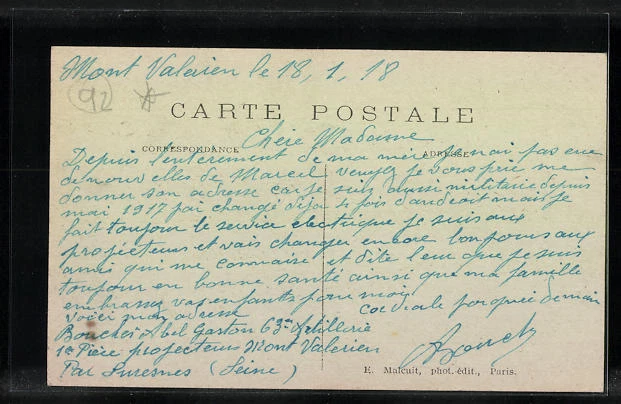 Mont Valerien le 18, 1, 18
92
CARTE POSTALE
CORRESPONDANCE
ADRESSE
Chère Madame
Depuis l'enterement de ma mère je n'ai pas eue
de nouvelles de Marcel veuyez je vous prie me
donner son adresse car je suis aussi militaire depuis
mai 1917 j'ai changé déja 4 fois d'androit mais je
fait toujour le service electrique je suis aux
projecteurs et vais changer encore bonjours aux
amis qui me connaise et dite leur que je suis
toujour en bonne santé ainsi que ma famille
embrassez vos enfants pour moi
cordiale poignée de main
voici mon adresse
Boucher Abel Gaston 63em Artillerie
1re Pièce projecteur Mont Valerien
Par Suresnes (Seine)
E. Malcuit, phot.-édit., Paris.